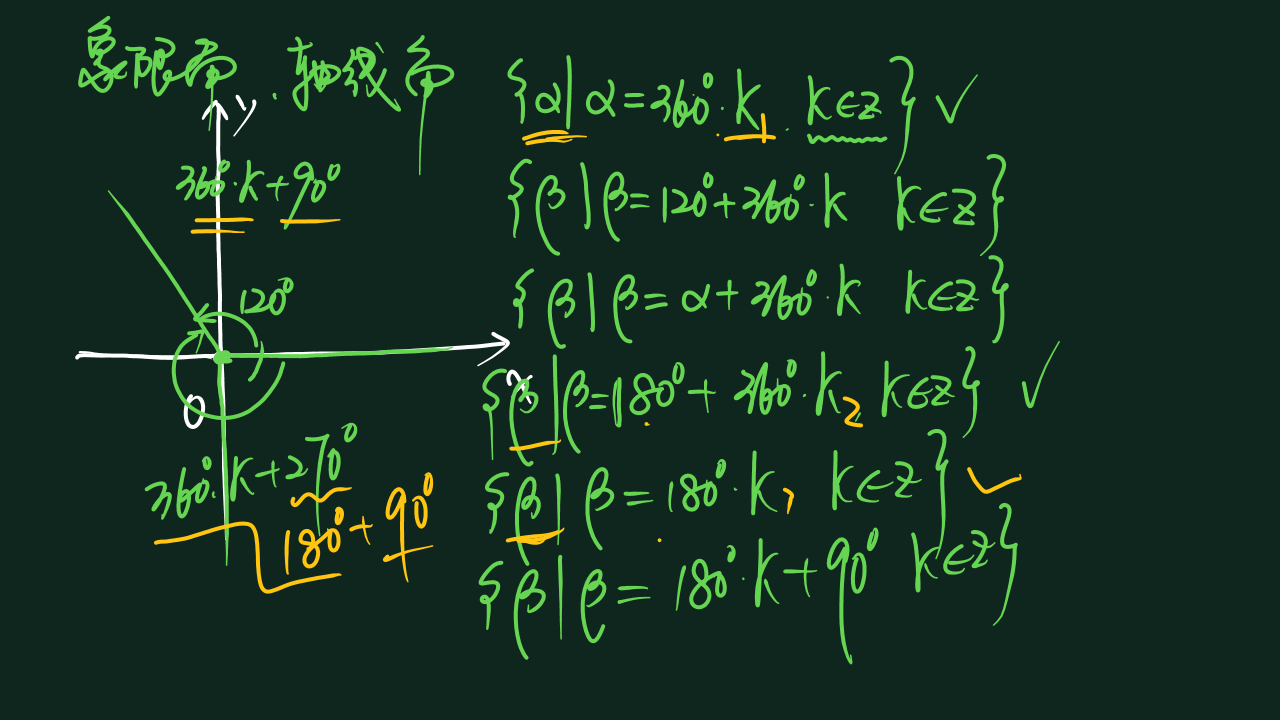 象限角.轴线角
y
360°·k+90°
120°
x
0
360°·k+270°
180°+90°
{α|α=360°·k₁. k∈z} ✓
{β|β=120°+360°·k k∈z}
{β|β=α+360°·k k∈z}
{β|β=180°+360°·k₂ k∈z} ✓
{β|β=180°·k, k∈z} ✓
{β|β=180°·k+90° k∈z}